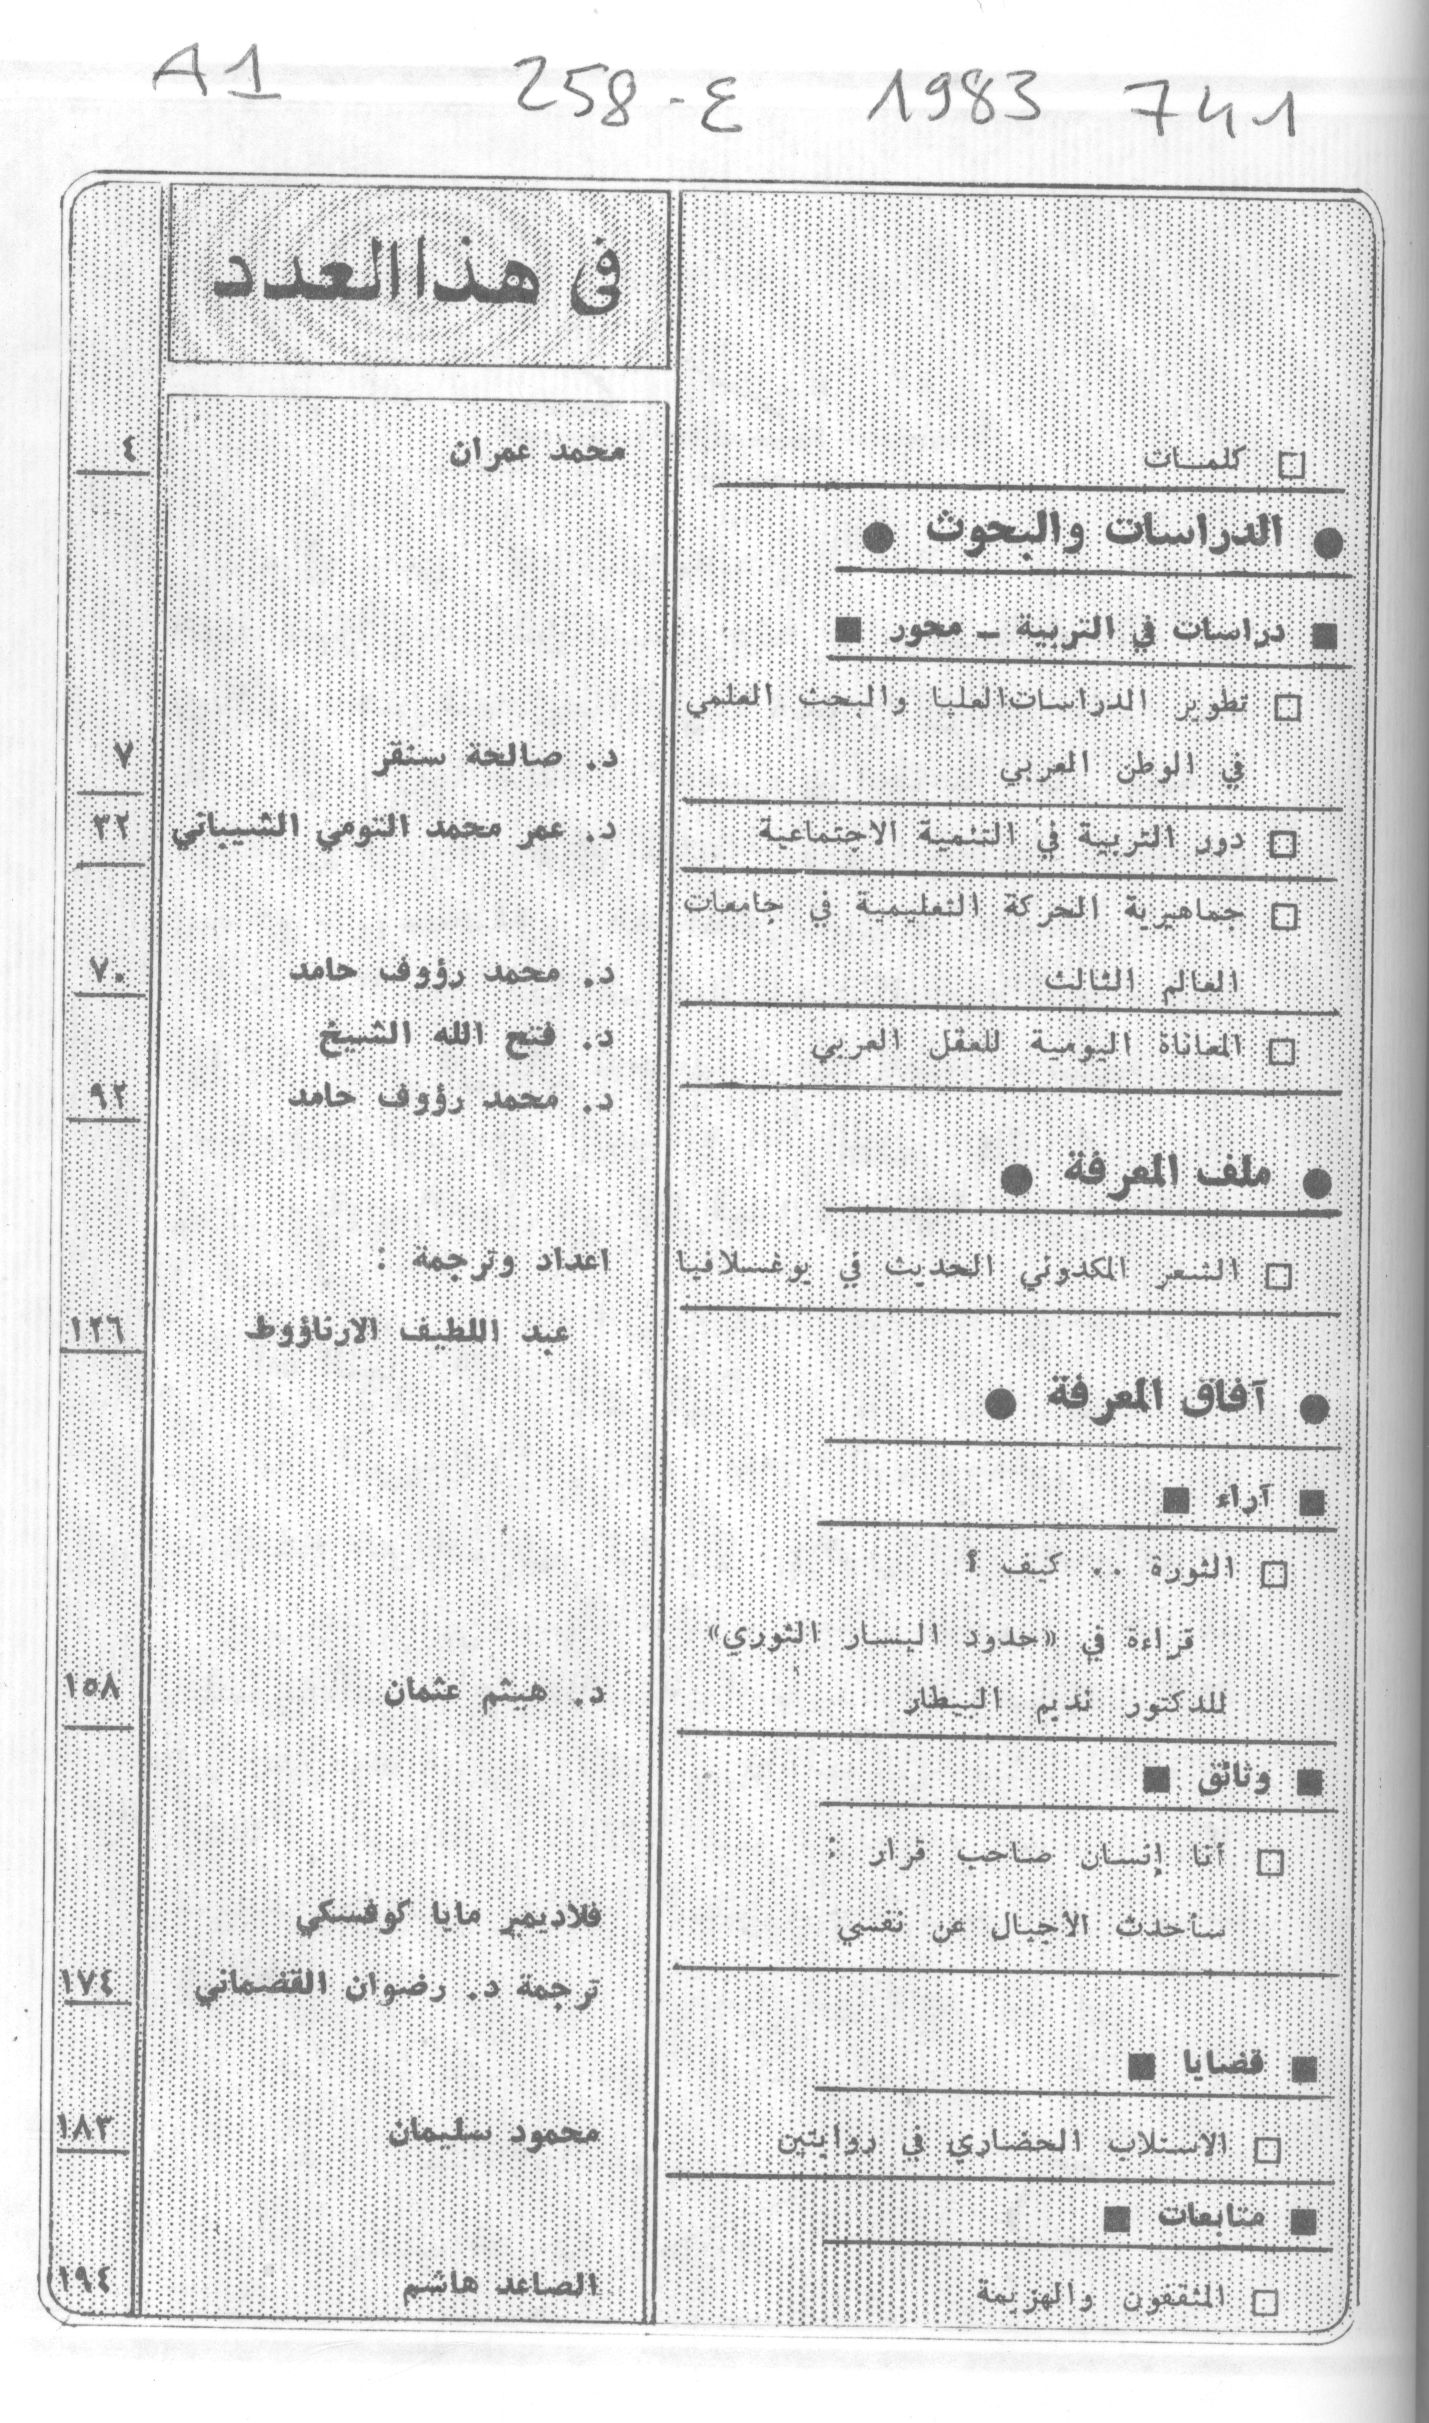 A1 258-ع 1983 741
في هذا العدد
□ كلمــات محمد عمران ٤
● الدراسات والبحوث ●
■ دراسات في التربية ــ محور ■
□ تطوير الدراسات العليا والبحث العلمي
في الوطن العربي د. صالحة سنقر ٧
□ دور التربية في التنمية الاجتماعية د. عمر محمد التومي الشيباني ٣٢
□ جماهيرية الحركة التعليمية في جامعات
العالم الثالث د. محمد رؤوف حامد ٧٠
□ المعاناة اليومية للعقل العربي د. فتح الله الشيخ
د. محمد رؤوف حامد ٩٢
● ملف المعرفة ●
□ الشعر المكدوني الحديث في يوغسلافيا اعداد وترجمة :
عبد اللطيف الارناؤوط ١٢٦
● آفاق المعرفة ●
■ آراء ■
□ الثورة .. كيف ؟
قراءة في «حدود اليسار الثوري»
للدكتور نديم البيطار د. هيثم عثمان ١٥٨
■ وثائق ■
□ أنا إنسان صاحب قرار :
سأحدث الأجيال عن نفسي فلاديمير مايا كوفسكي
ترجمة د. رضوان القضماني ١٧٤
■ قضايا ■
□ الاستلاب الحضاري في روايتين محمود سليمان ١٨٣
■ متابعات ■
□ المثقفون والهزيمة الصاعد هاشم ١٩٤